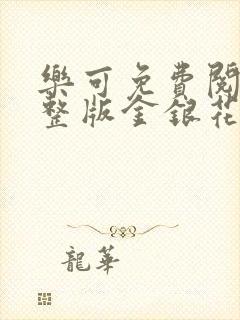 樂可免費閱
整版金銀花
龍華